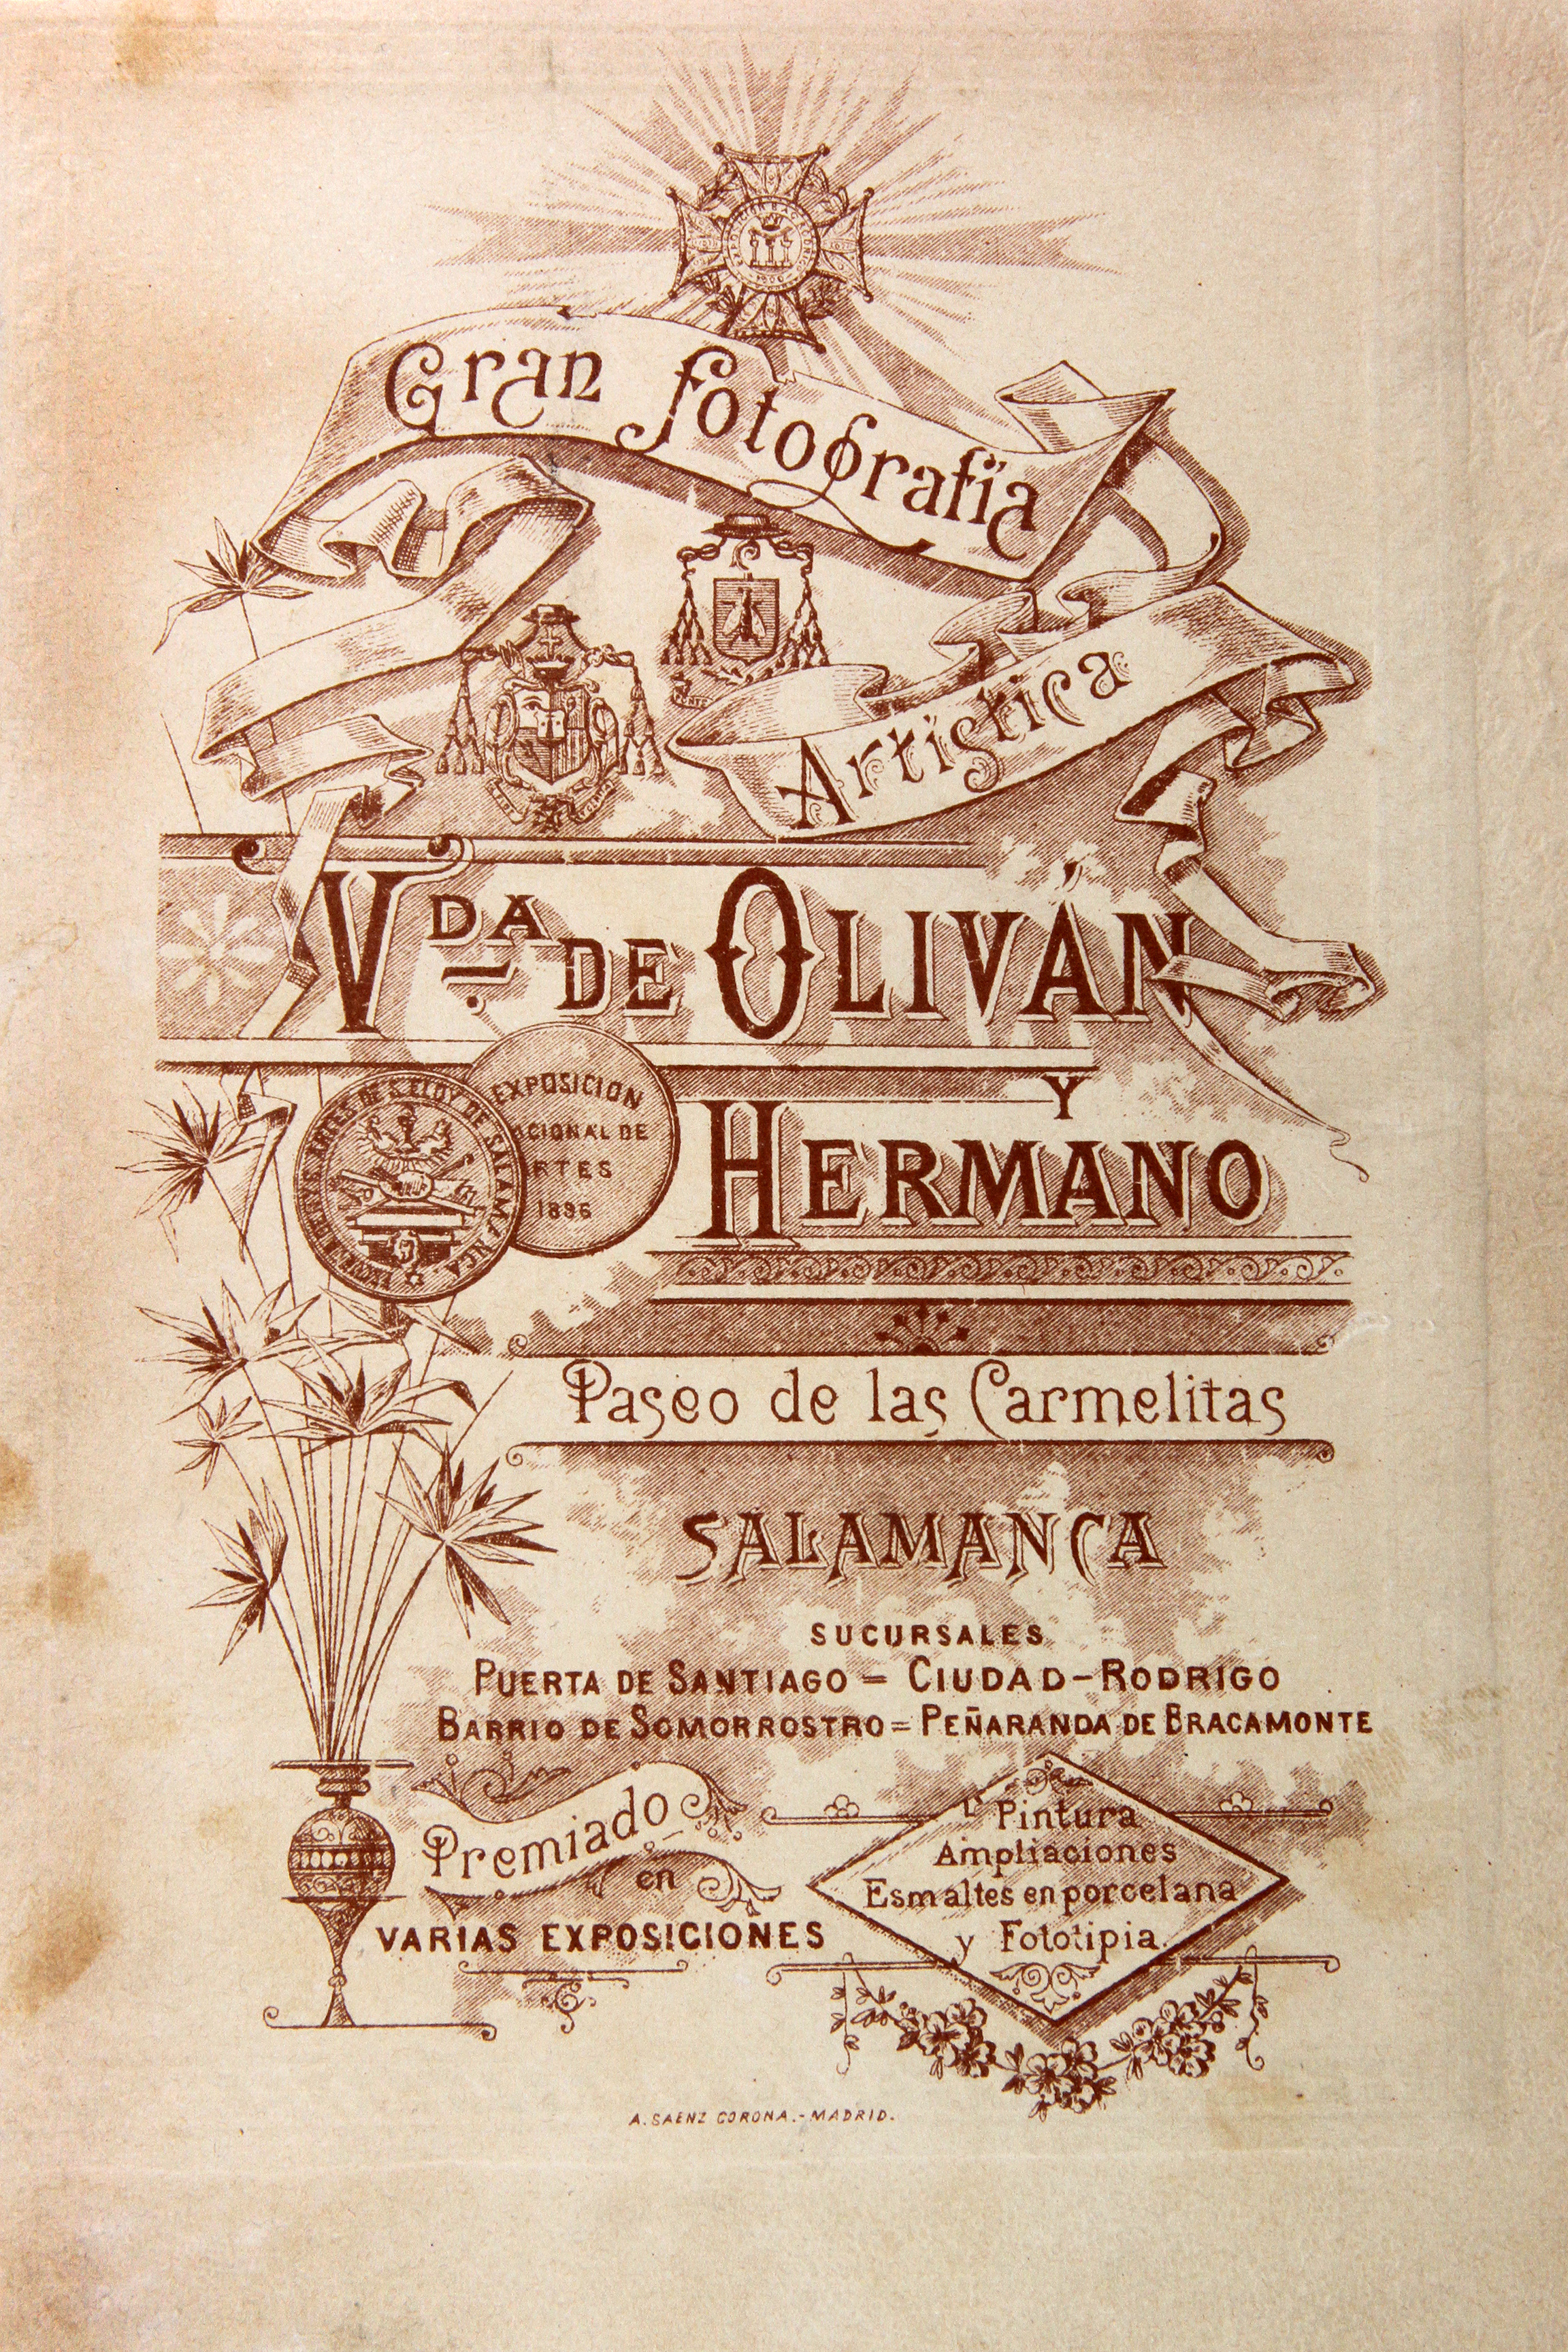 Gran Fotografía
Artística
Vda DE OLIVÁN
Y
HERMANO
DE S. ELOY DE SALAMANCA
EXPOSICION
DE
1896
Paseo de las Carmelitas
SALAMANCA
SUCURSALES
PUERTA DE SANTIAGO = CIUDAD-RODRIGO
BARRIO DE SOMORROSTRO = PEÑARANDA DE BRACAMONTE
Premiado
en
VARIAS EXPOSICIONES
Pintura
Ampliaciones
Esmaltes en porcelana
y Fototipia.
A. SAENZ CORONA.-MADRID.